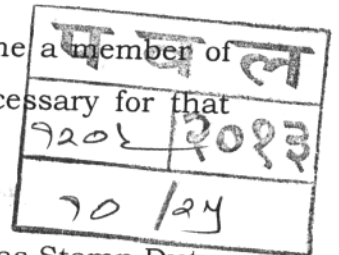 ne a member of
प व ल
cessary for that
१२०८ २०१३
१० /२५
as Stamp Dut